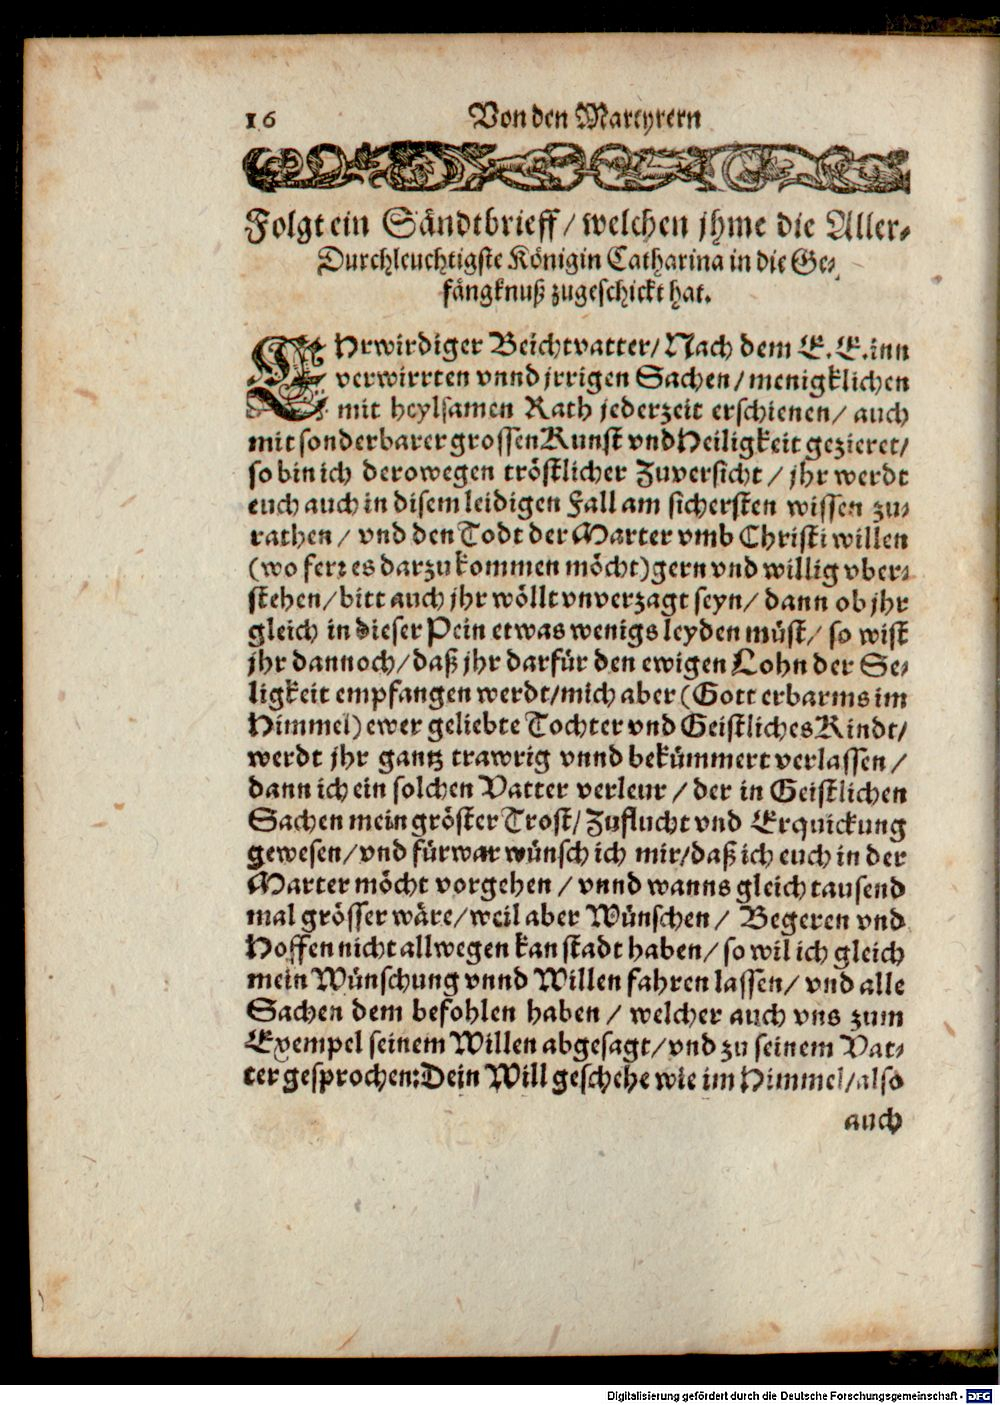 16 Von den Martyrern
Folgt ein Sändtbrieff/ welchen jhme die Aller-
Durchleuchtigste Königin Catharina in die Ge-
fängknuß zugeschickt hat.
EHrwirdiger Beichtvatter/ Nach dem E. E. inn
verwirrten vnnd jrrigen Sachen/ menigklichen
mit heylsamen Rath jederzeit erschienen/ auch
mit sonderbarer grossen Kunst vnd Heiligkeit gezieret/
so bin ich derowegen tröstlicher Zuversicht/ jhr werdt
euch auch in disem leidigen Fall am sichersten wissen zu-
rathen/ vnd den Todt der Marter vmb Christi willen
(wo ferr es darzu kommen möcht) gern vnd willig vber-
stehen/ bitt auch jhr wöllt vnverzagt seyn/ dann ob jhr
gleich in dieser Pein etwas wenigs leyden müst/ so wist
jhr dannoch/ daß jhr darfür den ewigen Lohn der Se-
ligkeit empfangen werdt/ mich aber (Gott erbarms im
Himmel) ewer geliebte Tochter vnd Geistliches Kindt/
werdt jhr gantz trawrig vnnd bekümmert verlassen/
dann ich ein solchen Vatter verleur/ der in Geistlichen
Sachen mein gröster Trost/ Zuflucht vnd Erquickung
gewesen/ vnd fürwar wünsch ich mir/ daß ich euch in der
Marter möcht vorgehen/ vnnd wanns gleich tausend
mal grösser wäre/ weil aber Wünschen/ Begeren vnd
Hoffen nicht allwegen kan stadt haben/ so wil ich gleich
mein Wünschung vnnd Willen fahren lassen/ vnd alle
Sachen dem befohlen haben/ welcher auch vns zum
Exempel seinem Willen abgesagt/ vnd zu seinem Vat-
ter gesprochen: Dein Will geschehe wie im Himmel/ also
auch
Digitalisierung gefördert durch die Deutsche Forschungsgemeinschaft - DFG